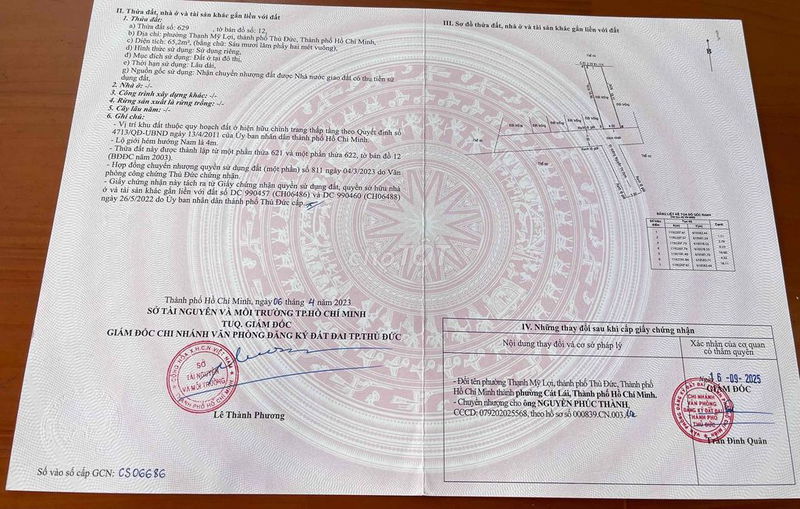 II. Thửa đất, nhà ở và tài sản khác gắn liền với đất
1. Thửa đất:
a) Thửa đất số: 629 , tờ bản đồ số: 12,
b) Địa chỉ: phường Thạnh Mỹ Lợi, thành phố Thủ Đức, Thành phố Hồ Chí Minh,
c) Diện tích: 65,2m², (bằng chữ: Sáu mươi lăm phẩy hai mét vuông),
d) Hình thức sử dụng: Sử dụng riêng,
đ) Mục đích sử dụng: Đất ở tại đô thị,
e) Thời hạn sử dụng: Lâu dài,
g) Nguồn gốc sử dụng: Nhận chuyển nhượng đất được Nhà nước giao đất có thu tiền sử
dụng đất,
2. Nhà ở: -/-
3. Công trình xây dựng khác: -/-
4. Rừng sản xuất là rừng trồng: -/-
5. Cây lâu năm: -/-
6. Ghi chú:
- Vị trí khu đất thuộc quy hoạch đất ở hiện hữu chỉnh trang thấp tầng theo Quyết định số
4713/QĐ-UBND ngày 13/4/2011 của Ủy ban nhân dân thành phố Hồ Chí Minh.
- Lộ giới hẻm hướng Nam là 4m.
- Thửa đất này được thành lập từ một phần thửa 621 và một phần thửa 622, tờ bản đồ 12
(BĐĐC năm 2003).
- Hợp đồng chuyển nhượng quyền sử dụng đất (một phần) số 811 ngày 04/3/2023 do Văn
phòng công chứng Thủ Đức chứng nhận.
- Giấy chứng nhận này tách ra từ Giấy chứng nhận quyền sử dụng đất, quyền sở hữu nhà
ở và tài sản khác gắn liền với đất số DC 990457 (CH06486) và DC 990460 (CH06488)
ngày 26/5/2022 do Ủy ban nhân dân thành phố Thủ Đức cấp.
Thành phố Hồ Chí Minh, ngày 06 tháng 4 năm 2023
SỞ TÀI NGUYÊN VÀ MÔI TRƯỜNG TP.HỒ CHÍ MINH
TUQ. GIÁM ĐỐC
GIÁM ĐỐC CHI NHÁNH VĂN PHÒNG ĐĂNG KÝ ĐẤT ĐAI TP.THỦ ĐỨC
SỞ
TÀI NGUYÊN
VÀ MÔI TRƯỜNG
Lê Thành Phương
Số vào sổ cấp GCN: CS06686
III. Sơ đồ thửa đất, nhà ở và tài sản khác gắn liền với đất
B
IV. Những thay đổi sau khi cấp giấy chứng nhận
Nội dung thay đổi và cơ sở pháp lý
Xác nhận của cơ quan
có thẩm quyền
- Đổi tên phường Thạnh Mỹ Lợi, thành phố Thủ Đức, Thành phố
Hồ Chí Minh thành phường Cát Lái, Thành phố Hồ Chí Minh.
- Chuyển nhượng cho ông NGUYỄN PHÚC THÀNH,
CCCD: 079202025568, theo hồ sơ số 000839.CN.003
Ngày 16 -09- 2025
GIÁM ĐỐC
CHI NHÁNH
VĂN PHÒNG
ĐĂNG KÝ ĐẤT ĐAI
THÀNH PHỐ
THỦ ĐỨC
Trần Đình Quân